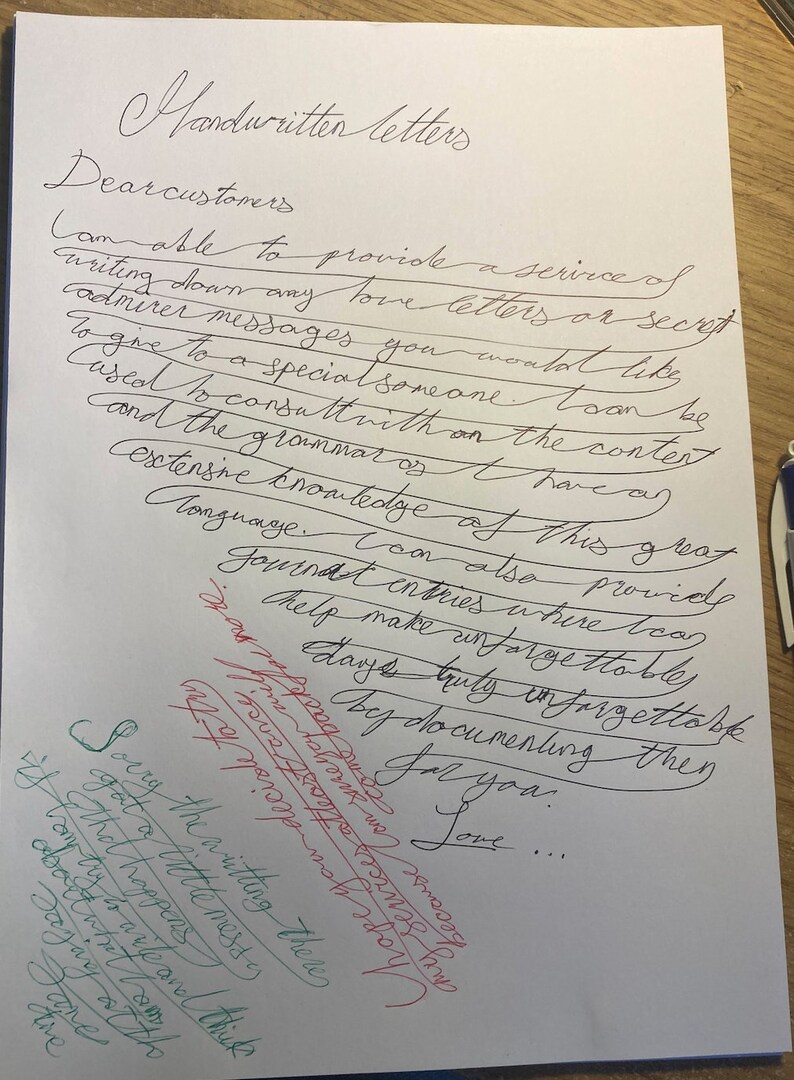 Handwritten letters
Dear customers
I am able to provide a serivce of
writing down any love letters or secret
admirer messages you would like
to give to a special someone. I can be
used to consult with on the content
and the grammar as I have an
exctensive knowledge of this great
language. I can also provide
journal entries where I can
help make unforgettable
days truly unforgettable
by documenting them
for you.
Love ...
I hope you decide to try
my services at least once
because I am sure you will
come back for more.
Sorry the writting there
got a little messy
that happens
if I am try to write and think
about what I am
saying at the
same
time